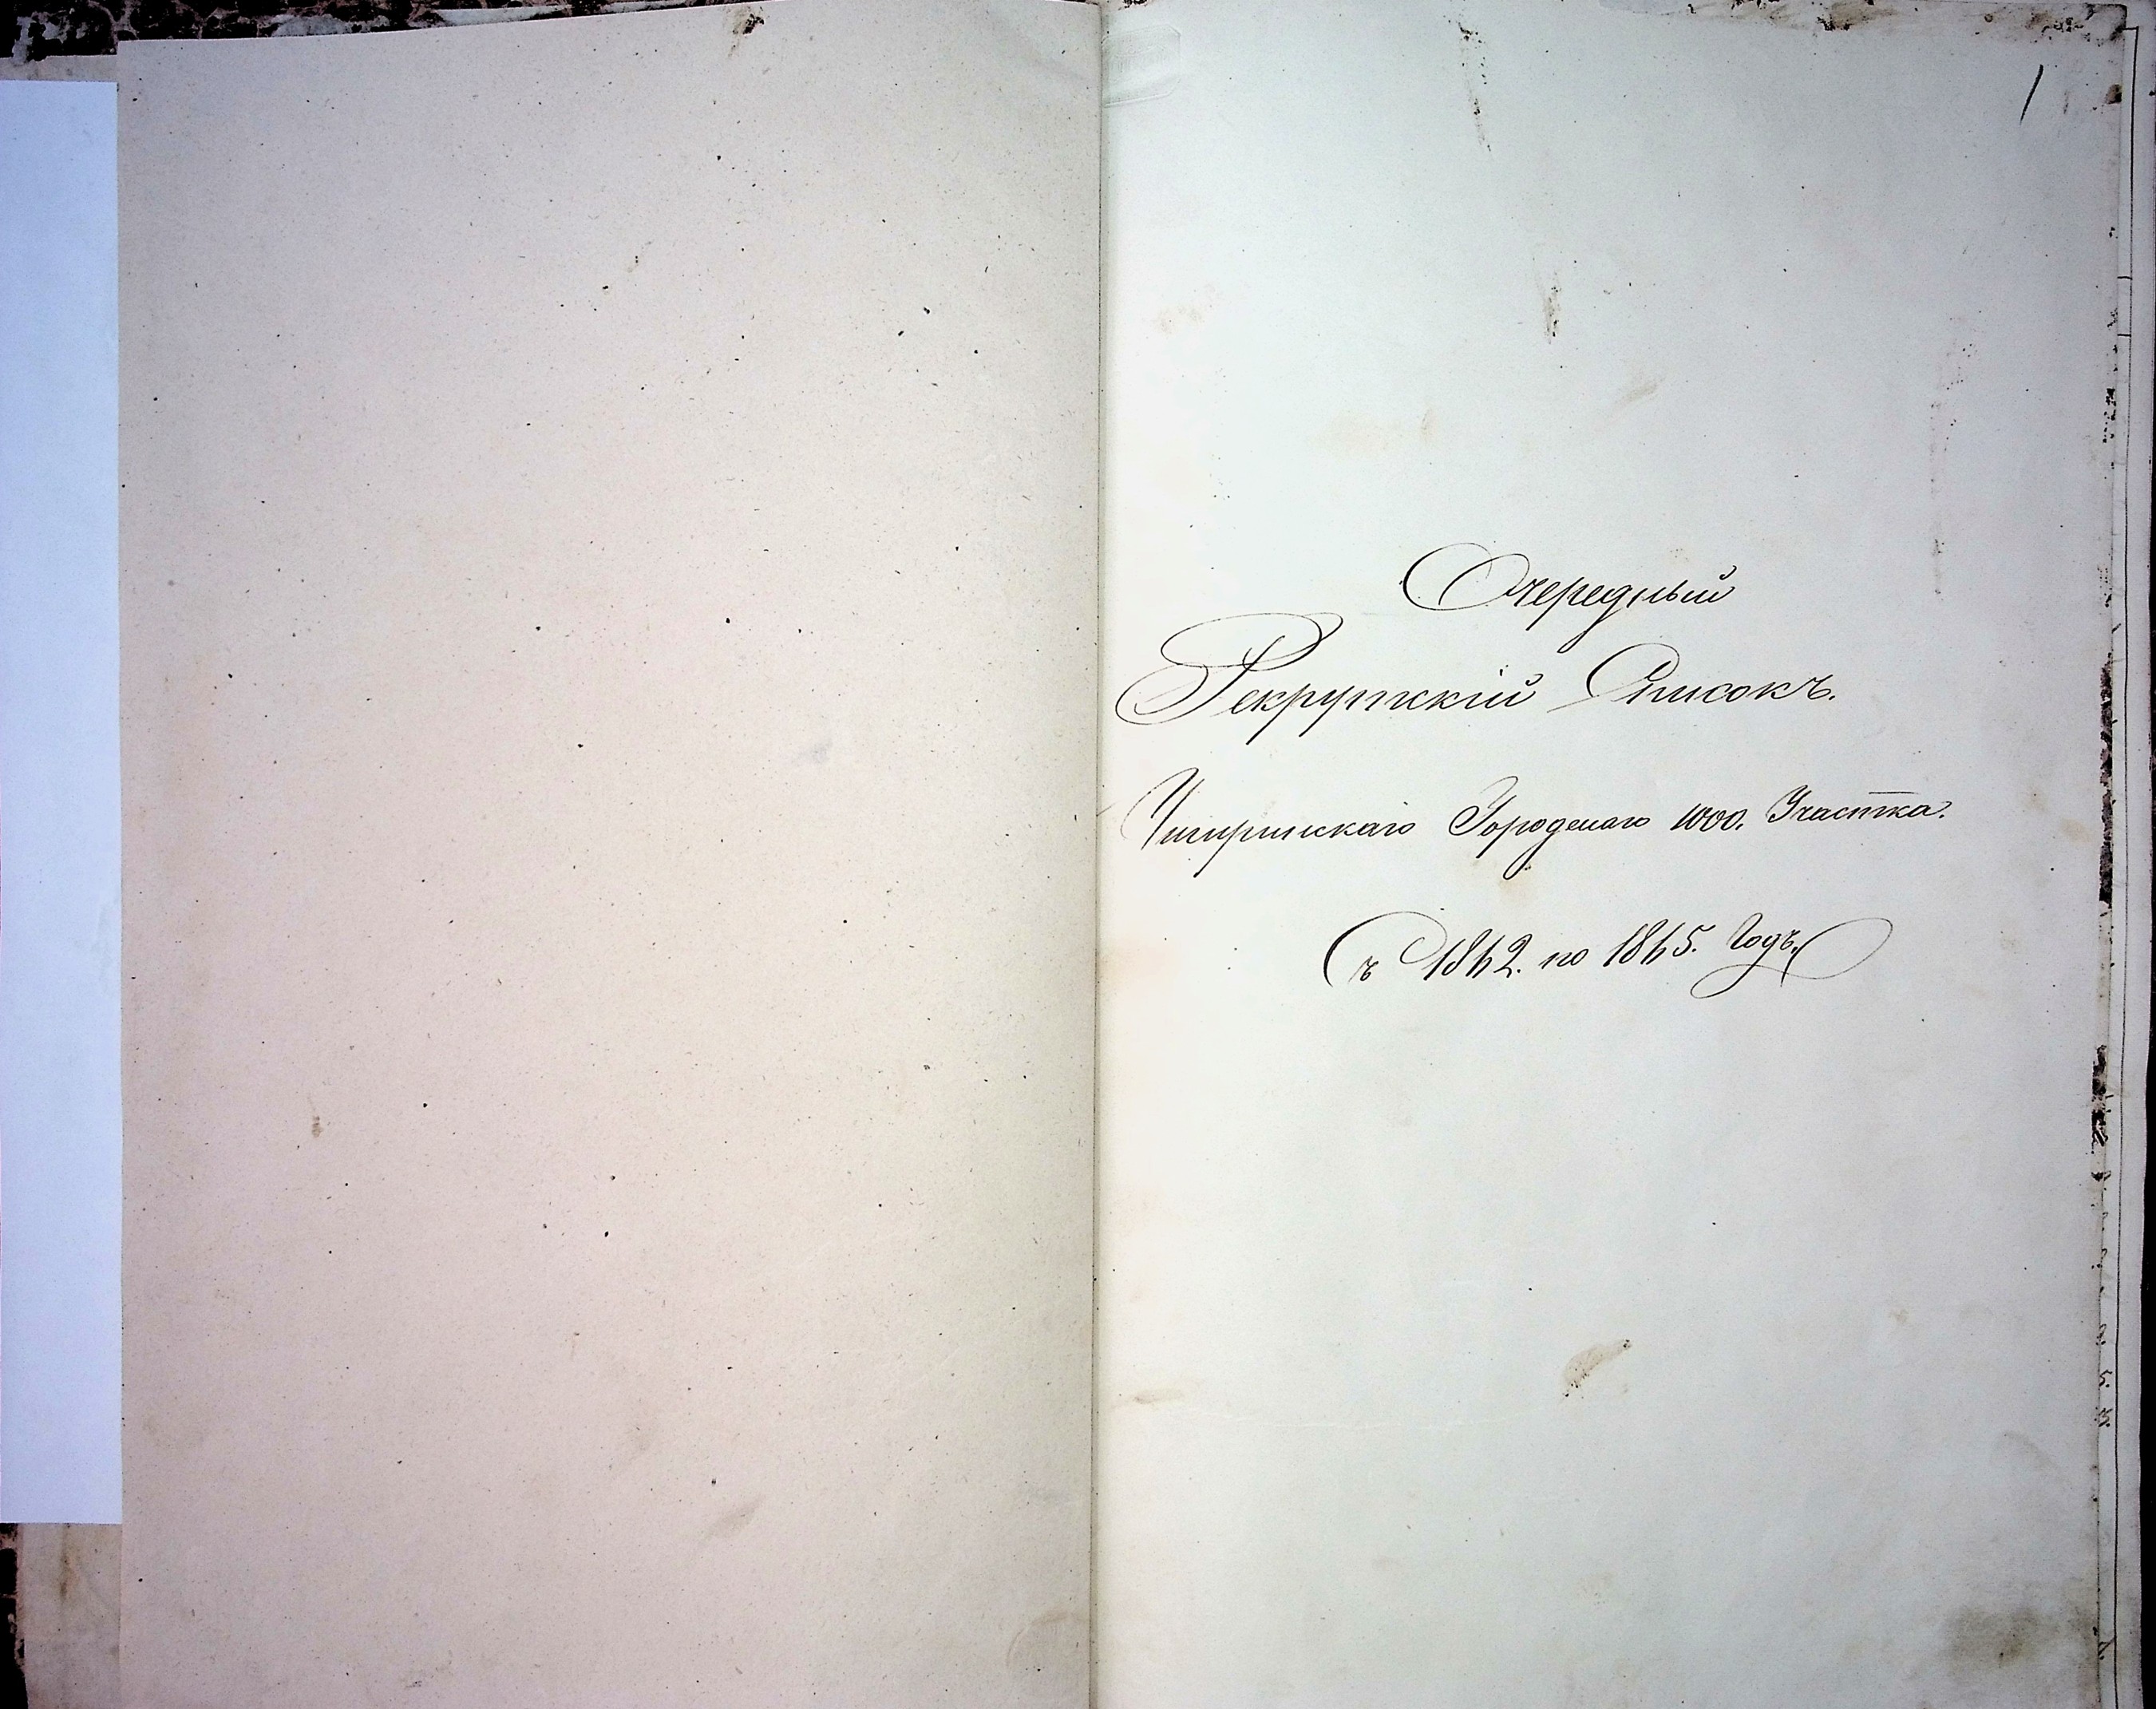 1
Очередный
Рекрутскій Списокъ.
Чигиринскаго Городскаго 1000. Участка.
съ 1842. по 1845. Годъ.